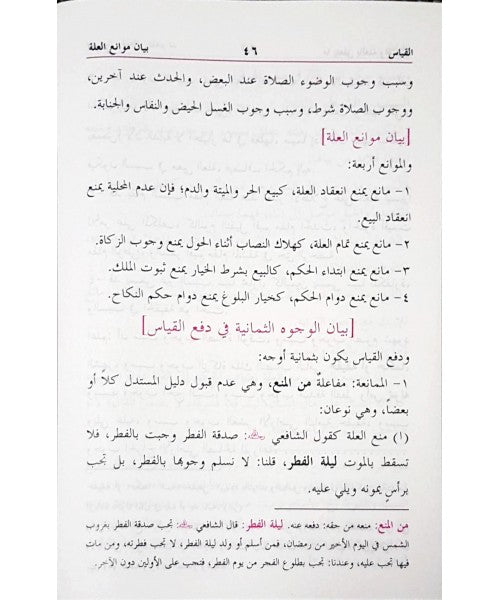 القياس ٤٦ بيان موانع العلة
وسبب وجوب الوضوء الصلاة عند البعض، والحدث عند آخرين،
ووجوب الصلاة شرط، وسبب وجوب الغسل الحيض والنفاس والجنابة.
[بيان موانع العلة]
والموانع أربعة:
١- مانع يمنع انعقاد العلة، كبيع الحر والميتة والدم؛ فإن عدم المحلية يمنع
انعقاد البيع.
٢- مانع يمنع تمام العلة، كهلاك النصاب أثناء الحول يمنع وجوب الزكاة.
٣- مانع يمنع ابتداء الحكم، كالبيع بشرط الخيار يمنع ثبوت الملك.
٤- مانع يمنع دوام الحكم، كخيار البلوغ يمنع دوام حكم النكاح.
[بيان الوجوه الثمانية في دفع القياس]
ودفع القياس يكون بثمانية أوجه:
١- الممانعة: مفاعلةٌ من المنع، وهي عدم قبول دليل المستدل كلاً أو
بعضاً، وهي نوعان:
(١) منع العلة كقول الشافعي: صدقة الفطر وجبت بالفطر، فلا
تسقط بالموت ليلة الفطر، قلنا: لا نسلم وجوبها بالفطر، بل تجب
برأسٍ يمونه ويلي عليه.
من المنع: منعه من حقه: دفعه عنه. ليلة الفطر: قال الشافعي تجب صدقة الفطر بغروب
الشمس في اليوم الأخير من رمضان، فمن أسلم أو ولد ليلة الفطر، لا تجب فطرته، ومن مات
فيها تجب عليه، وعندنا: تجب بطلوع الفجر من يوم الفطر، فتجب على الأولين دون الآخر.